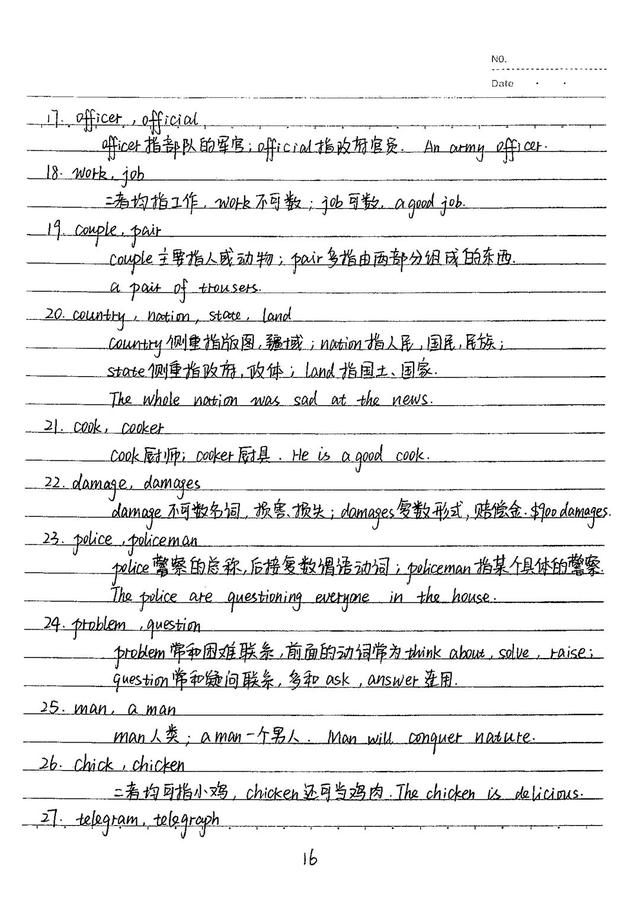 NO.
Date · ·
17. officer, official
officer指部队的军官；official指政府官员. An army officer.
18. work, job
二者均指工作, work不可数；job可数, a good job.
19. couple, pair
couple主要指人或动物；pair多指由两部分组成的东西.
a pair of trousers.
20. country, nation, state, land
country侧重指版图,疆域；nation指人民,国民,民族；
state侧重指政府,政体；land指国土、国家.
The whole nation was sad at the news.
21. cook, cooker
cook厨师；cooker厨具. He is a good cook.
22. damage, damages
damage不可数名词, 损害、损失；damages复数形式, 赔偿金. $900 damages.
23. police, policeman
police警察的总称,后接复数谓语动词；policeman指某个具体的警察.
The police are questioning everyone in the house.
24. problem, question
problem常和困难联系,前面的动词常为think about, solve, raise；
question常和疑问联系,多和ask, answer连用.
25. man, a man
man人类；a man一个男人. Man will conquer nature.
26. chick, chicken
二者均可指小鸡, chicken还可当鸡肉. The chicken is delicious.
27. telegram, telegraph
16